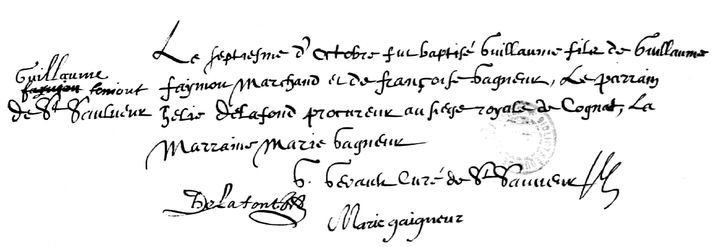 Le septiesme d'Octobre fut baptisé Guillaume filz de Guillaume
Guillaume
faymou Marchand et de françoise Gagneur, Le parrain
de St Saulveur
Helie Delafond procureur au siege royale de Cognac, La
Marraine Marie Gagneur
G. Gerault Curé de St Sauveur
Delafont
Marie gaigneur